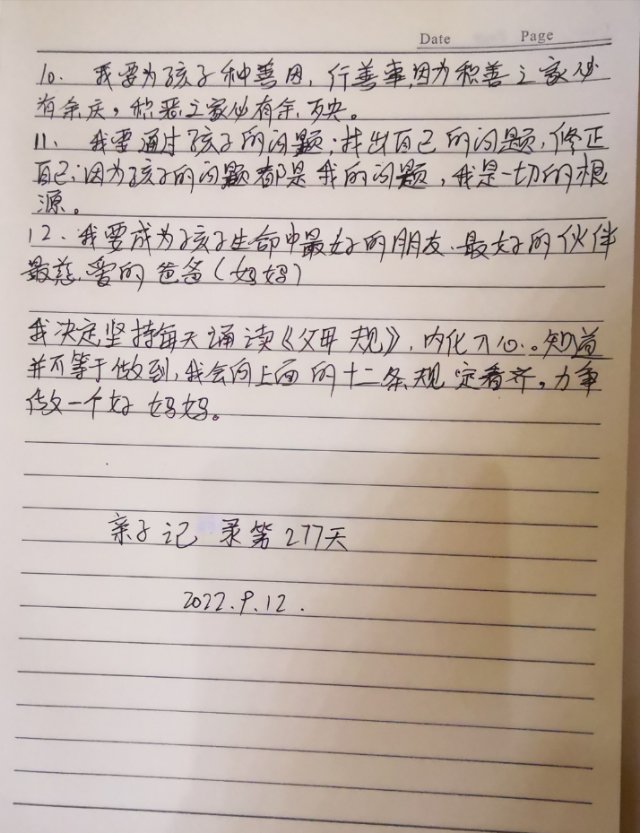 Date Page
10. 我要为孩子种善因，行善事，因为积善之家必
有余庆，积恶之家必有余殃。
11. 我要通过孩子的问题，找出自己的问题，修正
自己，因为孩子的问题都是我的问题，我是一切的根
源。
12. 我要成为孩子生命中最好的朋友、最好的伙伴
最慈爱的爸爸（妈妈）
我决定坚持每天诵读《父母规》，内化于心。知道
并不等于做到，我会向上面的十二条规定看齐。力争
做一个好妈妈。
亲子记录第277天
2022.9.12.